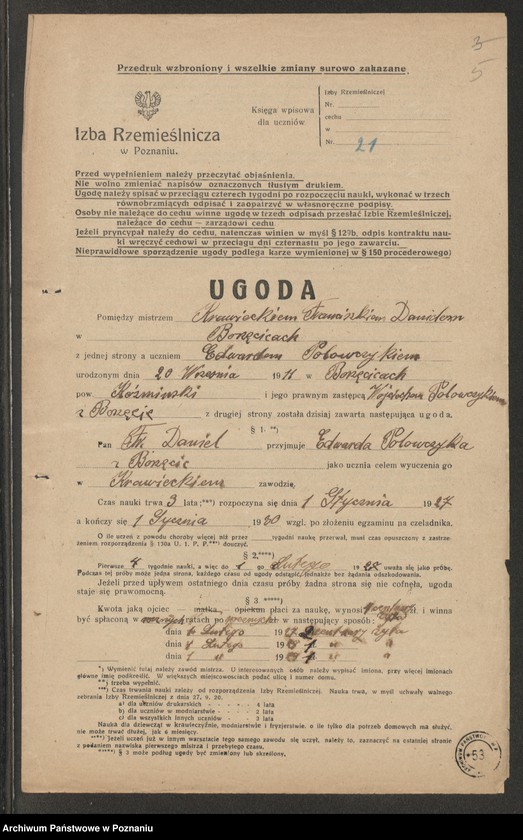 3
5
Przedruk wzbroniony i wszelkie zmiany surowo zakazane.
Izba Rzemieślnicza
w Poznaniu.
Księga wpisowa
dla uczniów
Izby Rzemieślniczej
Nr.
cechu
w
Nr. 21
Przed wypełnieniem należy przeczytać objaśnienia.
Nie wolno zmieniać napisów oznaczonych tłustym drukiem.
Ugodę należy spisać w przeciągu czterech tygodni po rozpoczęciu nauki, wykonać w trzech
równobrzmiących odpisach i zaopatrzyć w własnoręczne podpisy.
Osoby nie należące do cechu winne ugodę w trzech odpisach przesłać Izbie Rzemieślniczej,
należące do cechu – zarządowi cechu
Jeżeli pryncypał należy do cechu, natenczas winien w myśl § 129b, odpis kontraktu nau-
ki wręczyć cechowi w przeciągu dni czternastu po jego zawarciu.
Nieprawidłowe sporządzenie ugody podlega karze wymienionej w § 150 procederowej)
UGODA
Pomiędzy mistrzem Krawieckiem Franciszkiem Danielem
w Borzęcicach
z jednej strony a uczniem Edwardem Polowczykiem
urodzonym dnia 20 Września 1911 w Borzęcicach
pow Koźmiński i jego prawnym zastępcą Wojciechem Polowczykiem
z Borzęcic z drugiej strony została dzisiaj zawarta następująca ugoda,
§ 1. **)
Pan Fr. Daniel przyjmuje Edwarda Polowczyka
z Borzęcic jako ucznia celem wyuczenia go
w Krawieckiem zawodzie.
Czas nauki trwa 3 lata;***) rozpoczyna się dnia 1 Stycznia 1927
a kończy się 1 Stycznia 1930 wzgl. po złożeniu egzaminu na czeladnika.
O ile uczeń z powodu choroby więcej niż przez tygodni naukę przerwał, musi czas opuszczony z zastrze-
żeniem rozporządzenia § 130a O. l. P. P.***) douczyć.
§ 2.****)
Pierwsze 4 tygodnie nauki, a więc do 1 go Lutego 19 uważa się jako próbę.
Podczas tej próby może jedna strona, każdego czasu od ugody odstąpić jednakże bez żądania odszkodowania.
Jeżeli przed upływem ostatniego dnia czasu próby żadna strona się nie cofnęła, ugoda
staje się prawomocną.
§ 3.*****)
Kwota jaką ojciec — matka, — opiekun płaci za naukę, wynosi i winna
być spłaconą w ratach po w następujący sposób:
dnia Lutego 19
dnia Lutego 19
dnia 19
*) Wymienić tutaj należy zawód mistrza. U interesowanych osób należy wypisać imiona, przy więcej imionach
główne imię podkreślić. W większych miejscowościach podać ulicę i numer domu.
**) trzeba wypełnić.
***) Czas trwania nauki zależy od rozporządzenia Izby Rzemieślniczej. Nauka trwa, w myśl uchwały walnego
zebrania Izby Rzemieślniczej z dnia 27. 9. 20.
a) dla uczniów drukarskich - - - - - 4 lata
b) dla uczniów w modniarstwie - - - - 2 lata
c) dla wszystkich innych uczniów - - - 3 lata
Nauka dla dziewcząt w krawieczyźnie, modniarstwie i fryzjerstwie, o ile tylko dla potrzeb domowych ma służyć,
nie może trwać dłużej, jak 6 miesięcy.
****) Jeżeli uczeń już w innym warsztacie tego samego zawodu się uczył, należy to, zaznaczyć na ostatniej stronie
z podaniem nazwiska pierwszego mistrza i przebytego czasu.
*****) § 3 może podług ugody być zmieniony lub skreślony,
53
Archiwum Państwowe w Poznaniu
szukajwarchiwach.gov.pl